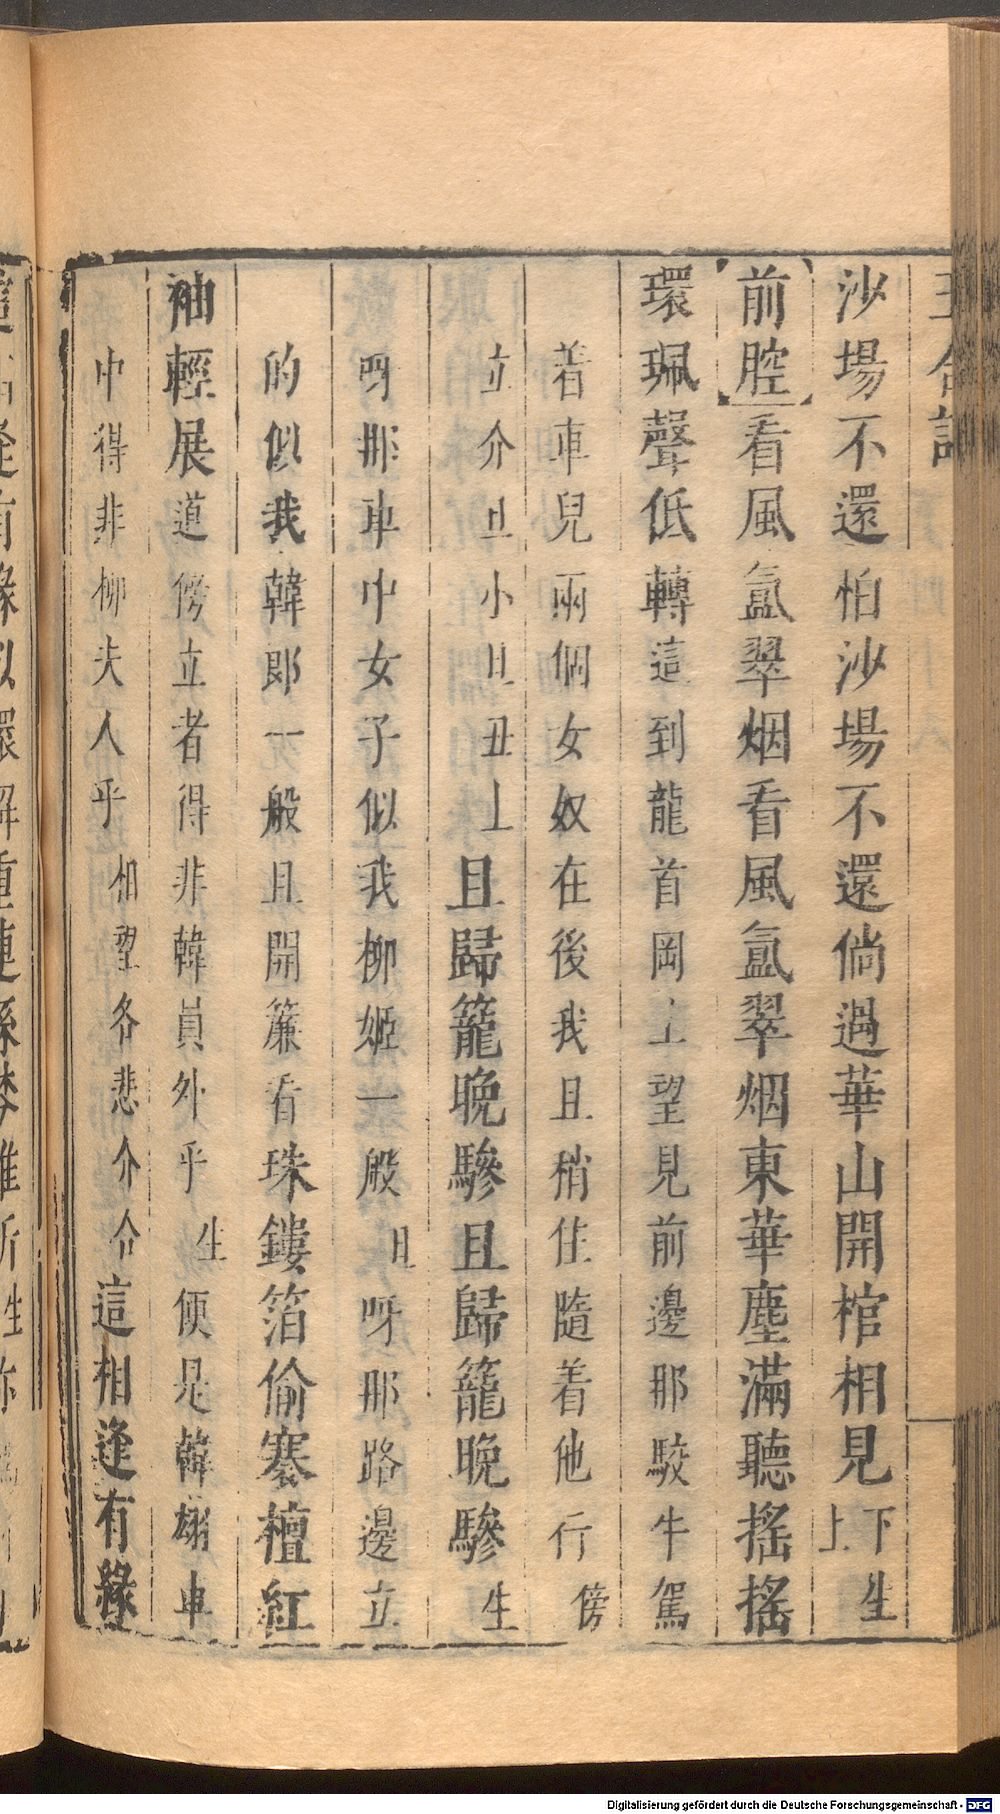 沙場不還怕沙場不還倘過華山開棺相見下生上
前腔看風氳翠烟看風氳翠烟東華塵滿聽搖搖
環珮聲低轉這到龍首岡上望見前邊那駮牛駕
着車兒兩個女奴在後我且稍住隨着他行傍
立介旦小旦丑上且歸籠晚驂且歸籠晚驂生
呀那車中女子似我柳姬一般旦呀那路邊立
的似我韓郎一般且開簾看珠鏤箔偷搴檀紅
袖輕展道傍立者得非韓員外乎生便是韓翃車
中得非柳夫人乎相望各悲介合這相逢有緣
Digitalisierung gefördert durch die Deutsche Forschungsgemeinschaft - DFG